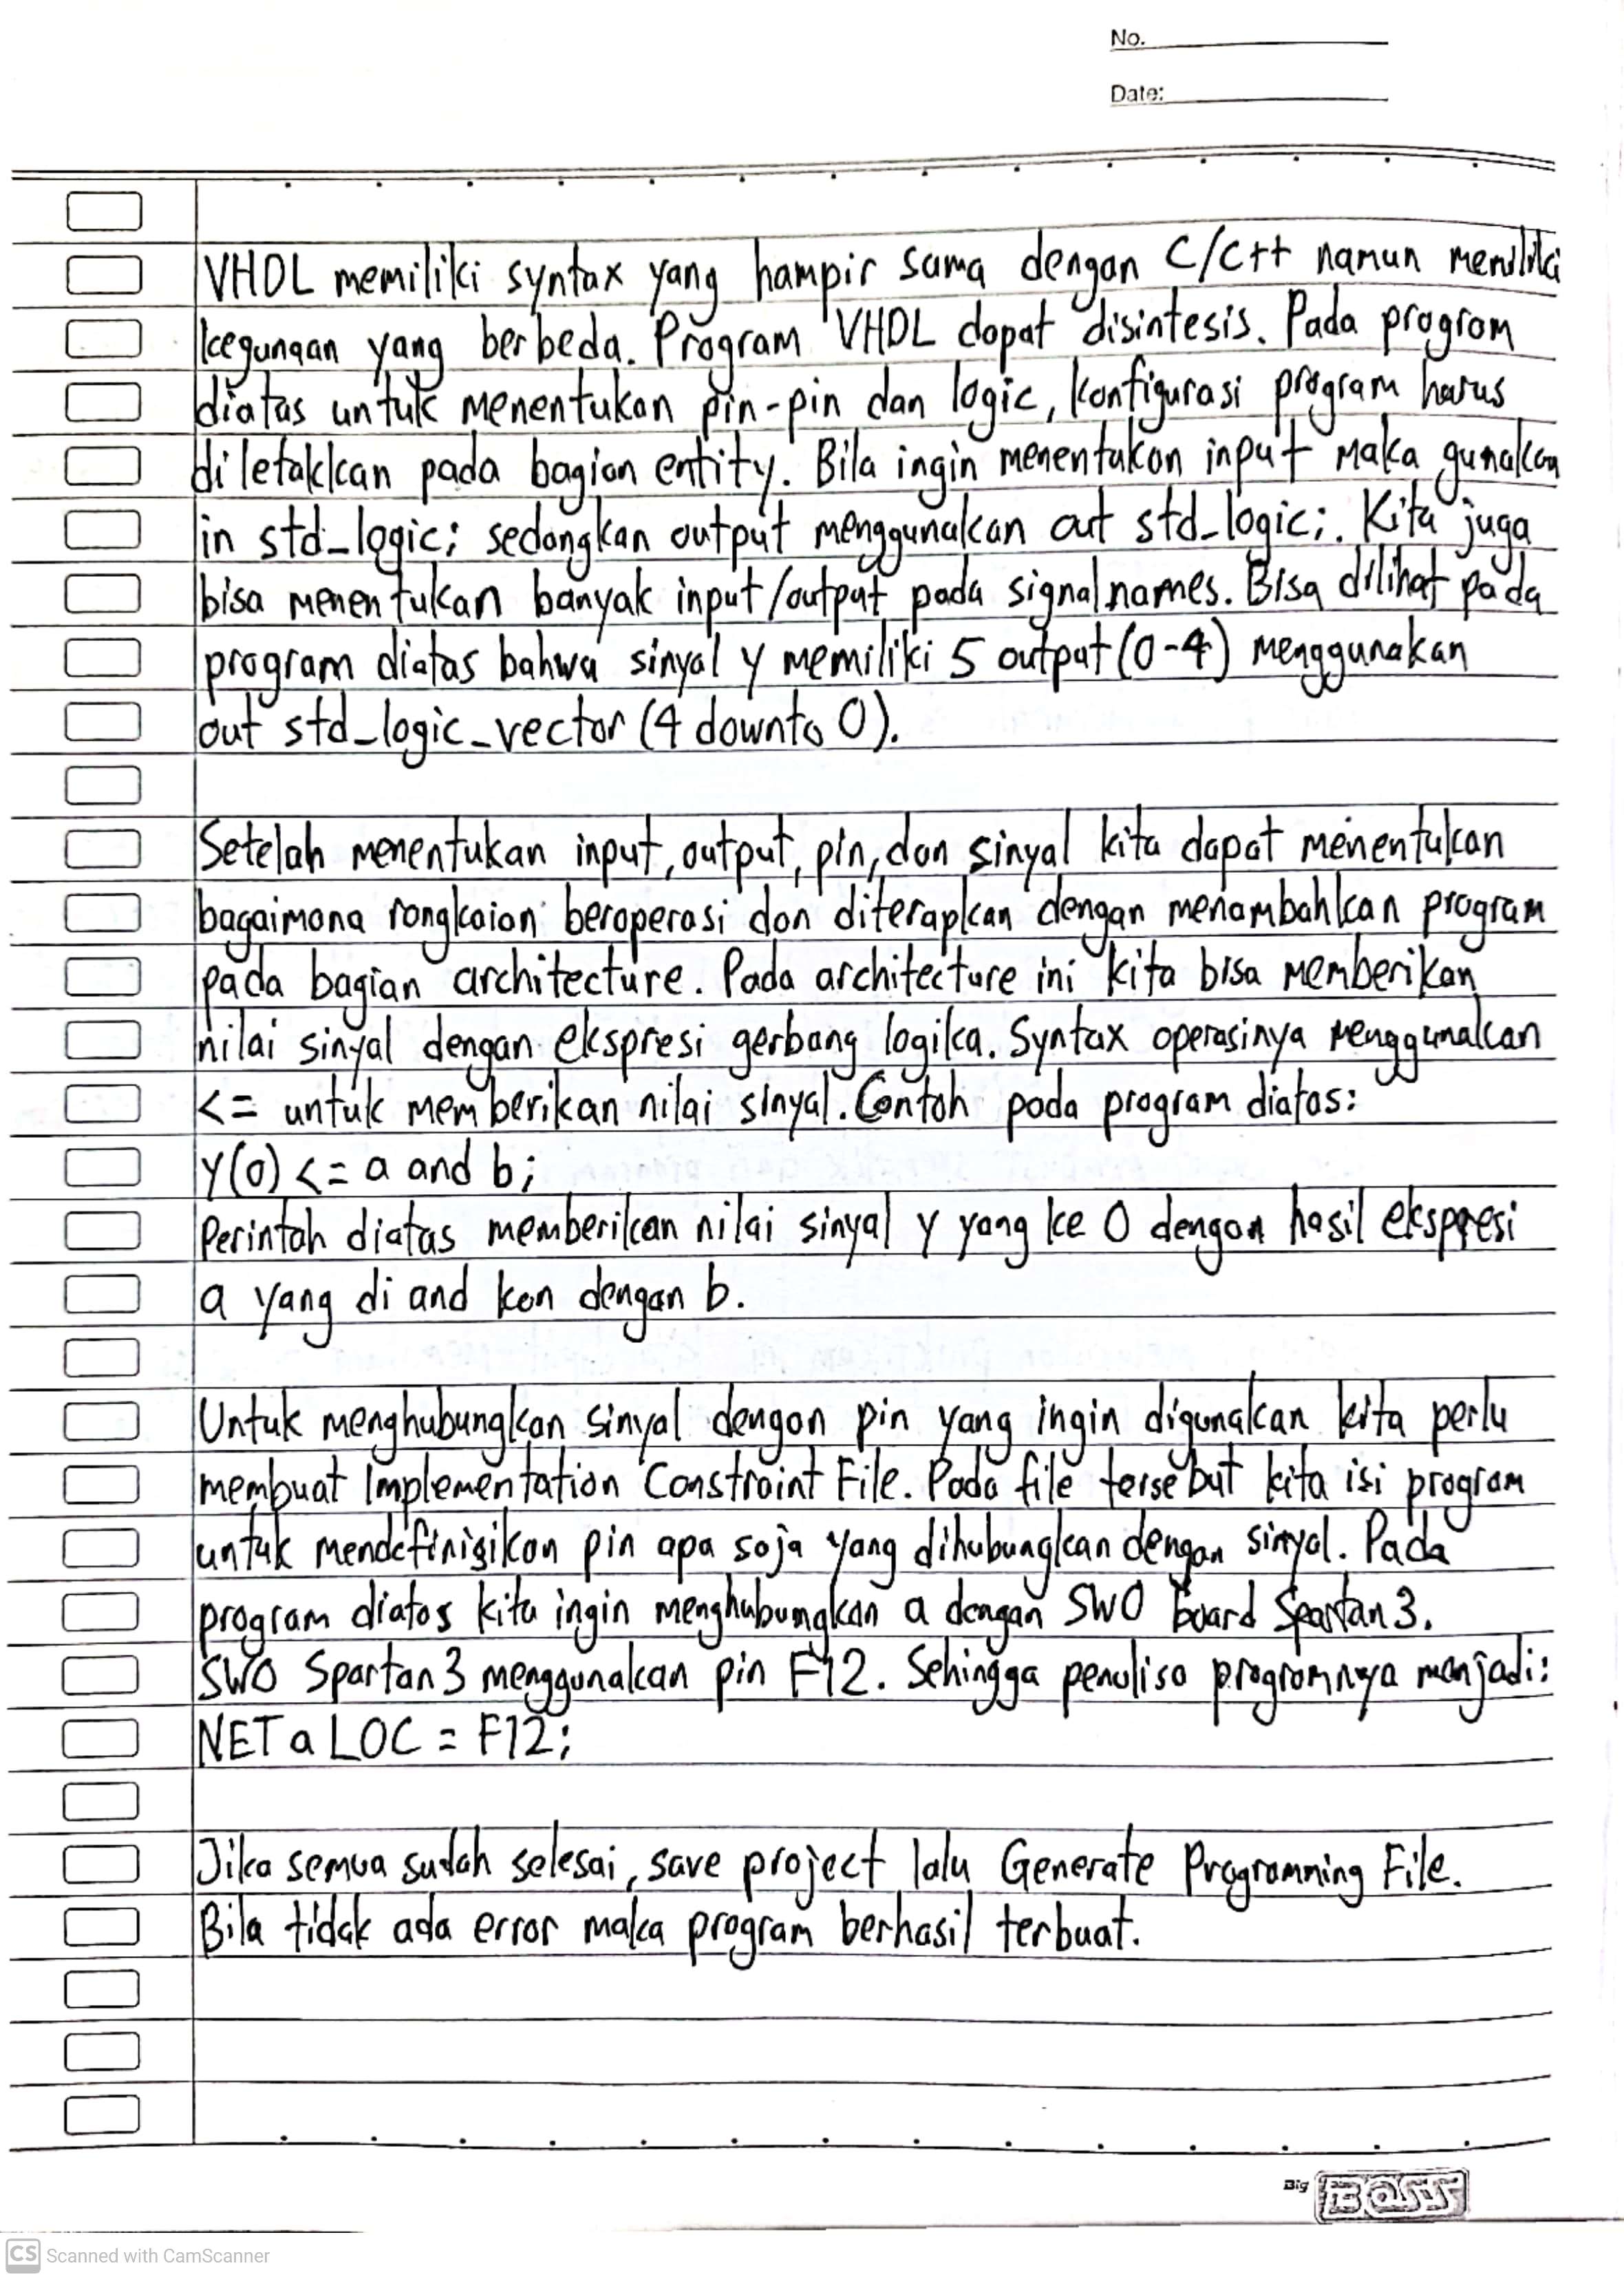 No.
Date:
VHDL memiliki syntax yang hampir sama dengan C/C++ namun memiliki
kegunaan yang berbeda. Program VHDL dapat disintesis. Pada program
diatas untuk menentukan pin-pin dan logic, konfigurasi program harus
diletakkan pada bagian entity. Bila ingin menentukan input maka gunakan
in std_logic; sedangkan output menggunakan out std_logic;. Kita juga
bisa menentukan banyak input/output pada signal names. Bisa dilihat pada
program diatas bahwa sinyal y memiliki 5 output (0-4) menggunakan
out std_logic_vector (4 downto 0).
Setelah menentukan input, output, pin, dan sinyal kita dapat menentukan
bagaimana rangkaian beroperasi dan diterapkan dengan menambahkan program
pada bagian architecture. Pada architecture ini kita bisa memberikan
nilai sinyal dengan ekspresi gerbang logika. Syntax operasinya menggunakan
<= untuk memberikan nilai sinyal. Contoh pada program diatas:
y(0) <= a and b;
Perintah diatas memberikan nilai sinyal y yang ke 0 dengan hasil ekspresi
a yang di and kan dengan b.
Untuk menghubungkan sinyal dengan pin yang ingin digunakan kita perlu
membuat Implementation Constraint File. Pada file tersebut kita isi program
untuk mendefinisikan pin apa saja yang dihubungkan dengan sinyal. Pada
program diatas kita ingin menghubungkan a dengan SW0 board Spartan 3.
SW0 Spartan 3 menggunakan pin F12. Sehingga penulisa programnya menjadi:
NET a LOC = F12;
Jika semua sudah selesai, save project lalu Generate Programming File.
Bila tidak ada error maka program berhasil terbuat.
Big BOSS
CS Scanned with CamScanner